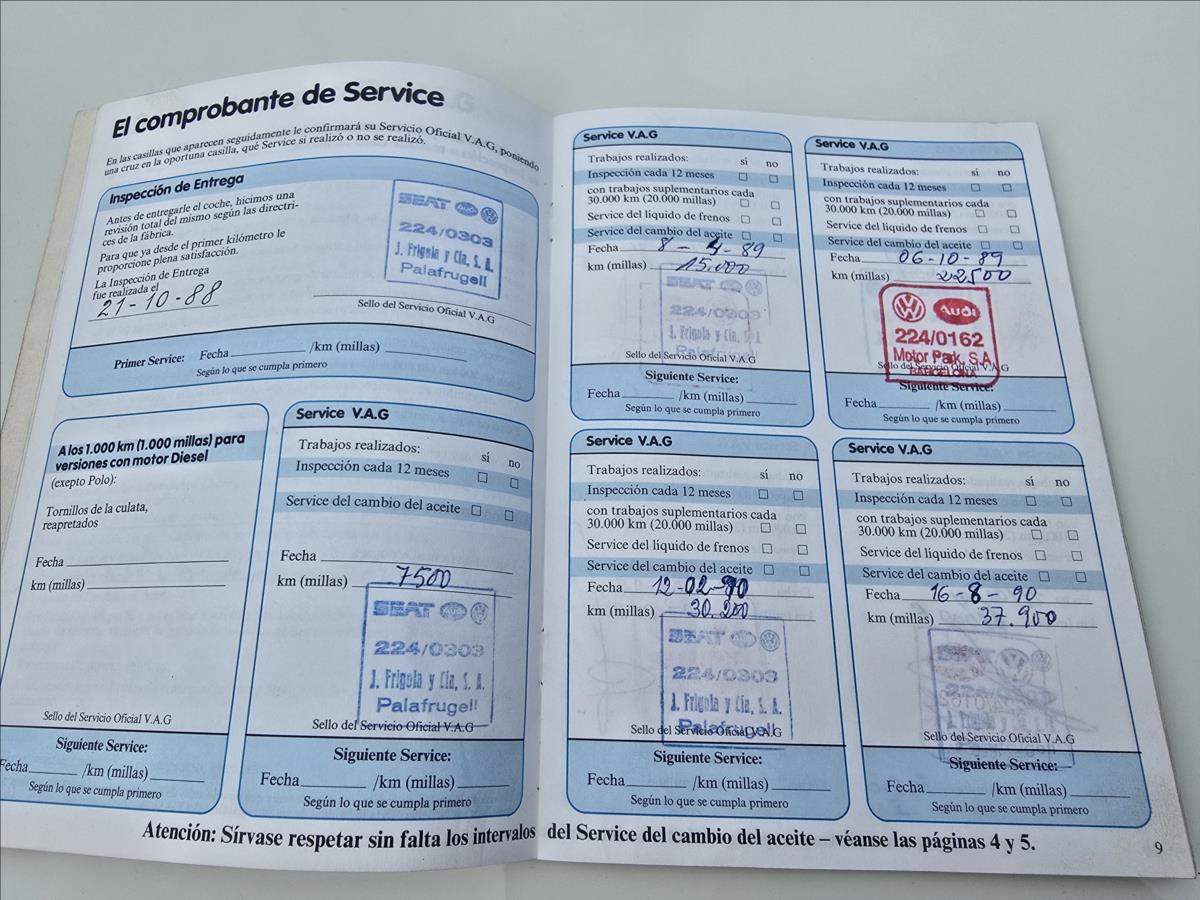 El comprobante de Service
En las casillas que aparecen seguidamente le confirmará su Servicio Oficial V.A.G, poniendo
una cruz en la oportuna casilla, qué Service si realizó o no se realizó.
Inspección de Entrega
Antes de entregarle el coche, hicimos una
revisión total del mismo según las directri-
ces de la fábrica.
Para que ya desde el primer kilómetro le
proporcione plena satisfacción.
La Inspección de Entrega
fue realizada el
21-10-88
SEAT
224/0303
J. Frigola y Cía, S. A.
Palafrugell
Sello del Servicio Oficial V.A.G
Primer Service: Fecha /km (millas)
Según lo que se cumpla primero
A los 1.000 km (1.000 millas) para
versiones con motor Diesel
(exepto Polo):
Tornillos de la culata,
reapretados
Fecha
km (millas)
Sello del Servicio Oficial V.A.G
Siguiente Service:
Fecha /km (millas)
Según lo que se cumpla primero
Service V.A.G
Trabajos realizados:
sí no
Inspección cada 12 meses
Service del cambio del aceite
Fecha
km (millas) 7500
SEAT
224/0303
J. Frigola y Cía, S. A.
Palafrugell
Sello del Servicio Oficial V.A.G
Siguiente Service:
Fecha /km (millas)
Según lo que se cumpla primero
Service V.A.G
Trabajos realizados: sí no
Inspección cada 12 meses
con trabajos suplementarios cada
30.000 km (20.000 millas)
Service del líquido de frenos
Service del cambio del aceite
Fecha 8-4-89
km (millas) 15.000
SEAT
224/0303
J. Frigola y Cía, S.A.
Sello del Servicio Oficial V.A.G
Siguiente Service:
Fecha /km (millas)
Según lo que se cumpla primero
Service V.A.G
Trabajos realizados: sí no
Inspección cada 12 meses
con trabajos suplementarios cada
30.000 km (20.000 millas)
Service del líquido de frenos
Service del cambio del aceite
Fecha 06-10-89
km (millas) 22500
Audi
224/0162
Motor Park, S.A.
BARCELONA
Sello del Servicio Oficial V.A.G
Siguiente Service:
Fecha /km (millas)
Según lo que se cumpla primero
Service V.A.G
Trabajos realizados: sí no
Inspección cada 12 meses
con trabajos suplementarios cada
30.000 km (20.000 millas)
Service del líquido de frenos
Service del cambio del aceite
Fecha 12-02-90
km (millas) 30.200
SEAT
224/0303
J. Frigola y Cía, S. A.
Palafrugell
Sello del Servicio Oficial V.A.G
Siguiente Service:
Fecha /km (millas)
Según lo que se cumpla primero
Service V.A.G
Trabajos realizados: sí no
Inspección cada 12 meses
con trabajos suplementarios cada
30.000 km (20.000 millas)
Service del líquido de frenos
Service del cambio del aceite
Fecha 16-8-90
km (millas) 37.900
SEAT
Sello del Servicio Oficial V.A.G
Siguiente Service:
Fecha /km (millas)
Según lo que se cumpla primero
Atención: Sírvase respetar sin falta los intervalos del Service del cambio del aceite – véanse las páginas 4 y 5.
9